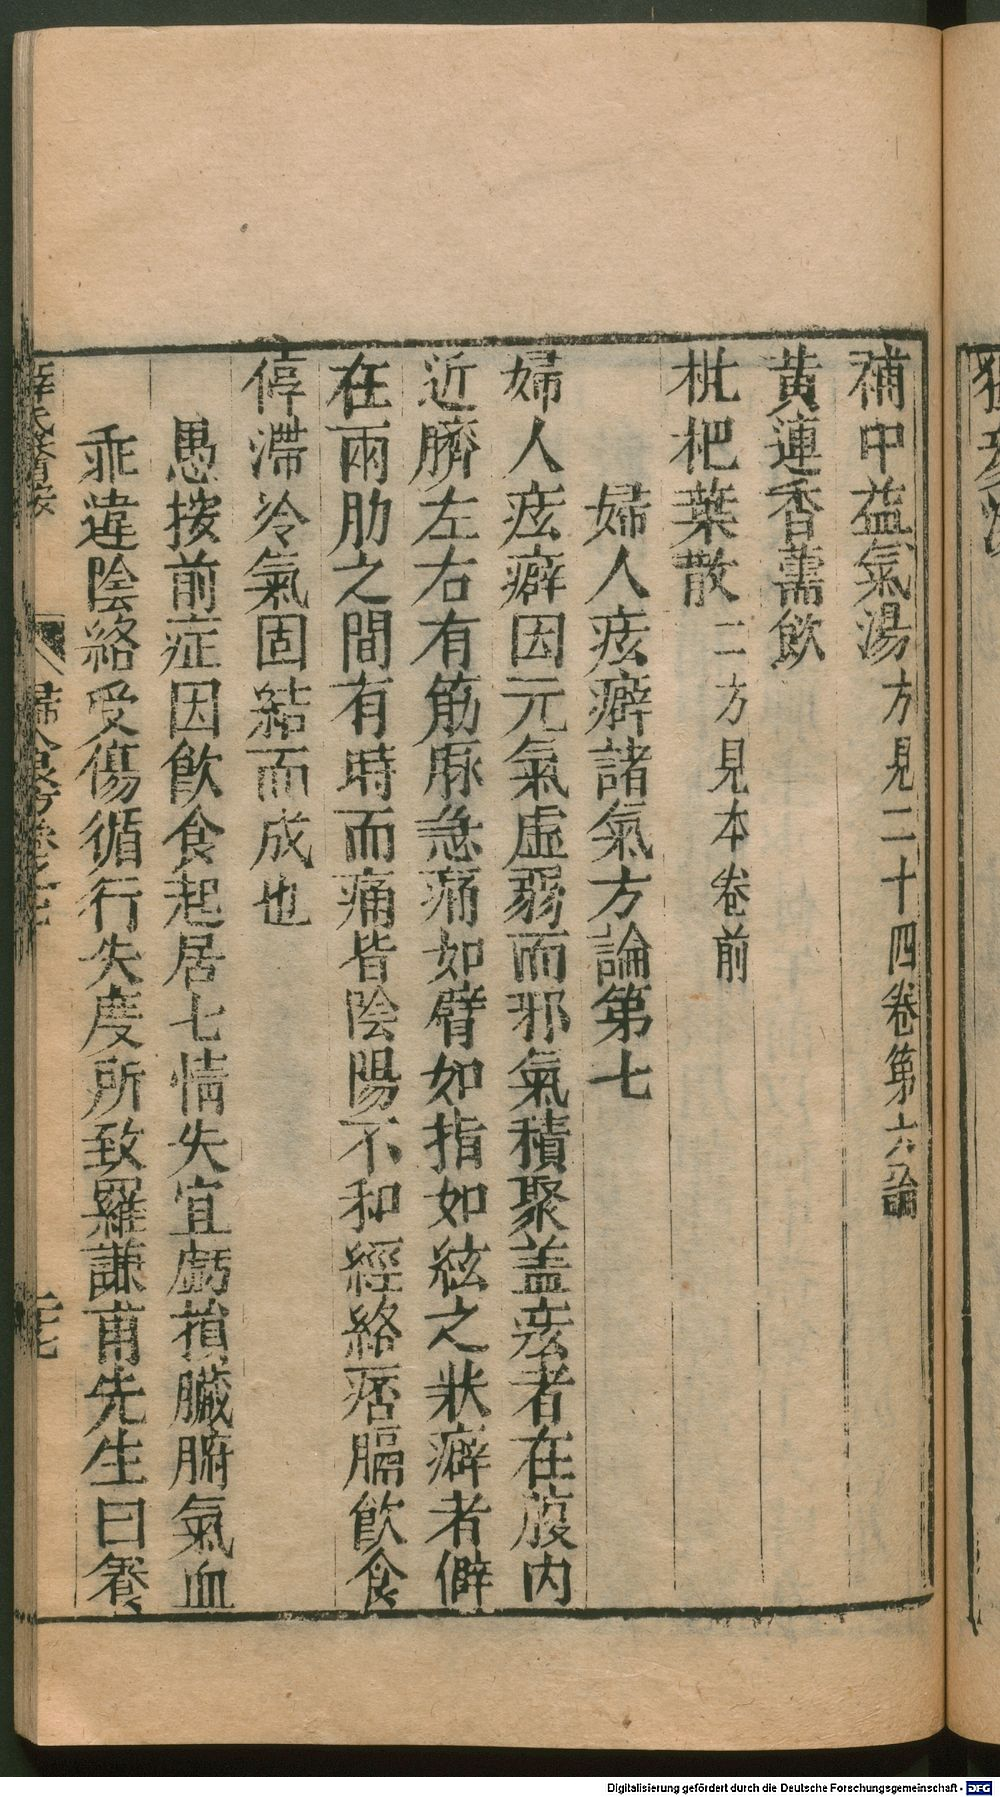 補中益氣湯方見二十四卷第六論
黄連香薷飲
枇杷葉散二方見本卷前
婦人痃癖諸氣方論第七
婦人痃癖因元氣虛弱而邪氣積聚盖痃者在腹内
近臍左右有筋脉急痛如臂如指如絃之狀癖者僻
在兩肋之間有時而痛皆陰陽不和經絡痞膈飲食
停滯冷氣固結而成也
愚按前症因飲食起居七情失宜虧損臟腑氣血
乖違陰絡受傷循行失度所致羅謙甫先生曰養
薛氏醫按
婦人良方卷之七
二七
Digitalisierung gefördert durch die Deutsche Forschungsgemeinschaft - DFG